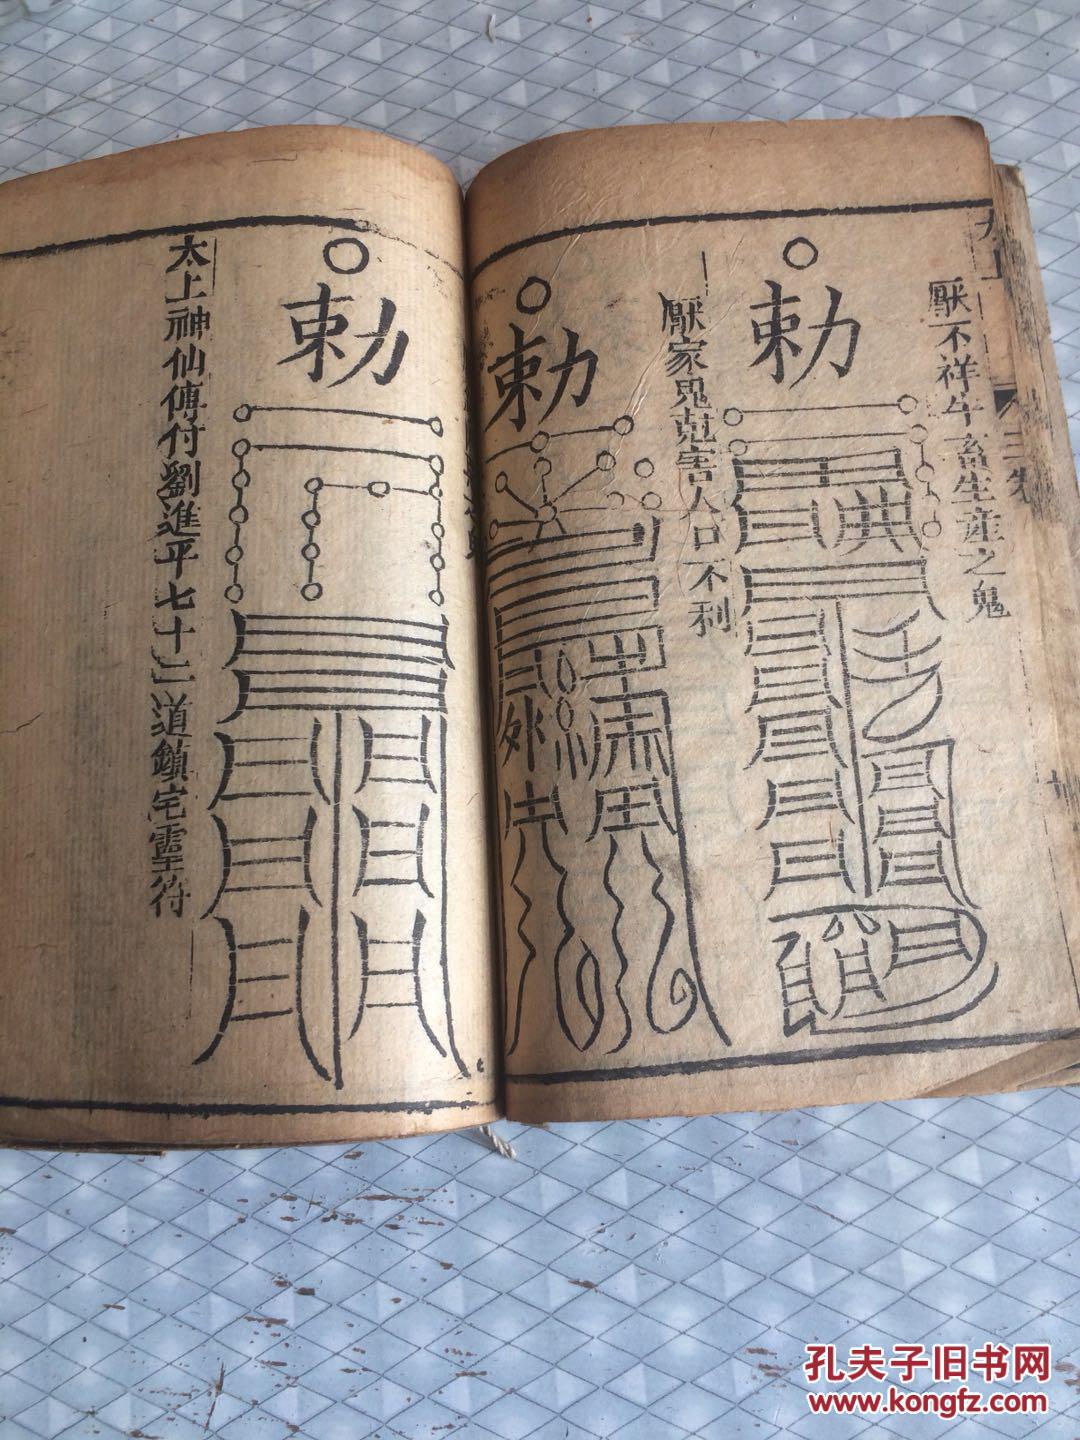 太上
三先
厭不祥牛畜生産之鬼
勅
厭家鬼尅害人口不利
勅
勅
太上神仙傅付劉進平七十二道鎮宅靈符
孔夫子旧书网
www.kongfz.com